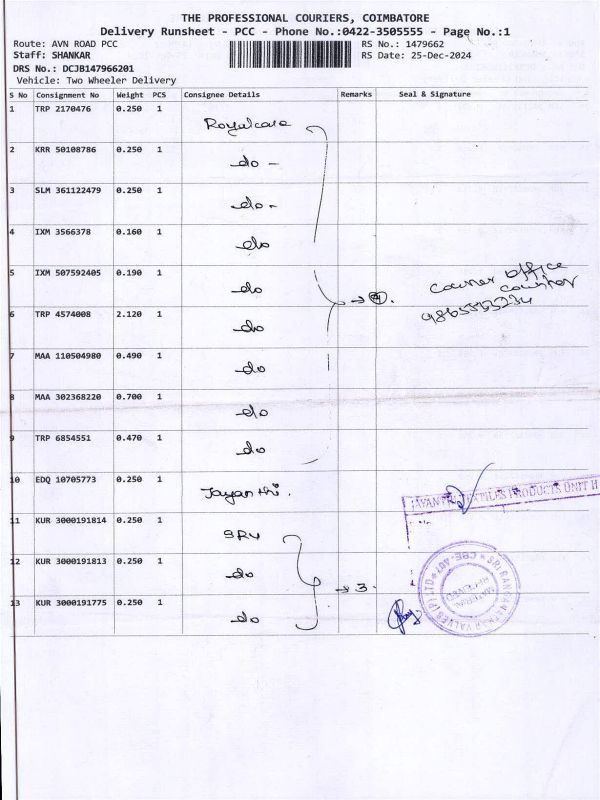 THE PROFESSIONAL COURIERS, COIMBATORE
Delivery Runsheet - PCC - Phone No.:0422-3505555 - Page No.:1
Route: AVN ROAD PCC
RS No.: 1479662
Staff: SHANKAR
RS Date: 25-Dec-2024
DRS No.: DCJB147966201
Vehicle: Two Wheeler Delivery
S No Consignment No Weight PCS Consignee Details Remarks Seal & Signature
1 TRP 2170476 0.250 1 Royalcare
2 KRR 50108786 0.250 1 do -
3 SLM 361122479 0.250 1 do -
4 IXM 3566378 0.160 1 do
5 IXM 507592405 0.190 1 do
courier office
courier
6 TRP 4574008 2.120 1 do
7 MAA 110504980 0.490 1 do
8 MAA 302368220 0.700 1 do
9 TRP 6854551 0.470 1 do
10 EDQ 10705773 0.250 1 Jayanthi.
TEXTILES PRODUCTS UNIT II
11 KUR 3000191814 0.250 1 SRV
12 KUR 3000191813 0.250 1 do
→ 3.
13 KUR 3000191775 0.250 1 do
SRI RANGANATHAR VALVES (P) LTD